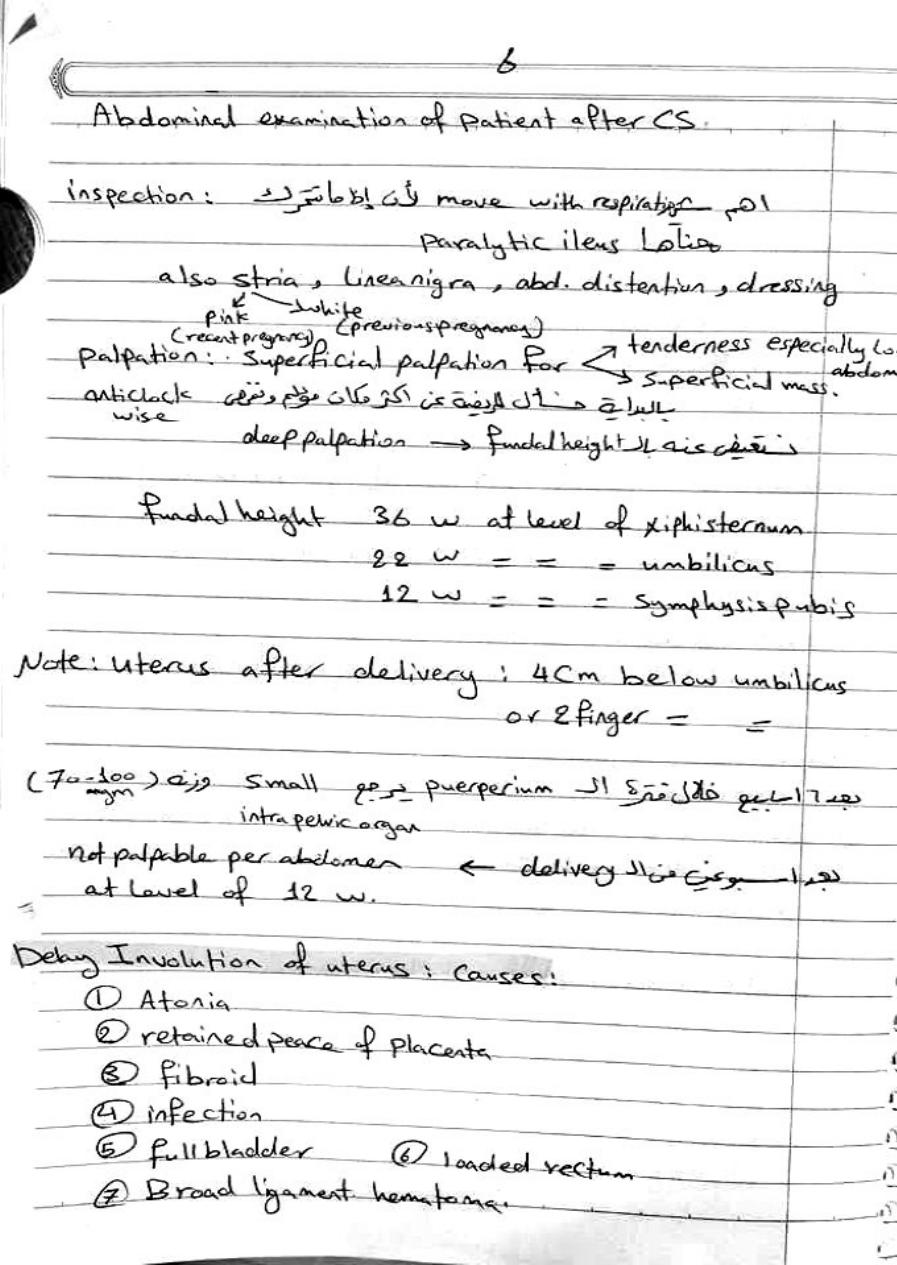 6
Abdominal examination of patient after CS.
inspection: اهم move with respiration لأن إذا ما تتحرك
paralytic ileus معناها
also stria, linea nigra, abd. distention, dressing
pink white
(recent pregnancy) (previous pregnancy)
palpation: Superficial palpation for → tenderness especially lo
abdom
→ superficial mass.
بالبداية نسأل المريضة عن اكثر مكان مؤلم anticlock
wise
deep palpation → fundal height نستعيض عنه بالـ
fundal height 36 w at level of xiphisternum
22 w = = = umbilicus
12 w = = = Symphysis pubis
Note: uterus after delivery: 4 Cm below umbilicus
or 2 finger = =
بعد 6 اسابيع خلال فترة الـ puerperium يرجع small وزنه (70-100
mgm)
intra pelvic organ
بعد اسبوعين من الـ delivery ← not palpable per abdomen
at level of 12 w.
Delay Involution of uterus: Causes:
① Atonia
② retained peace of placenta
③ fibroid
④ infection
⑤ full bladder ⑥ loaded rectum
⑦ Broad ligament hematoma.